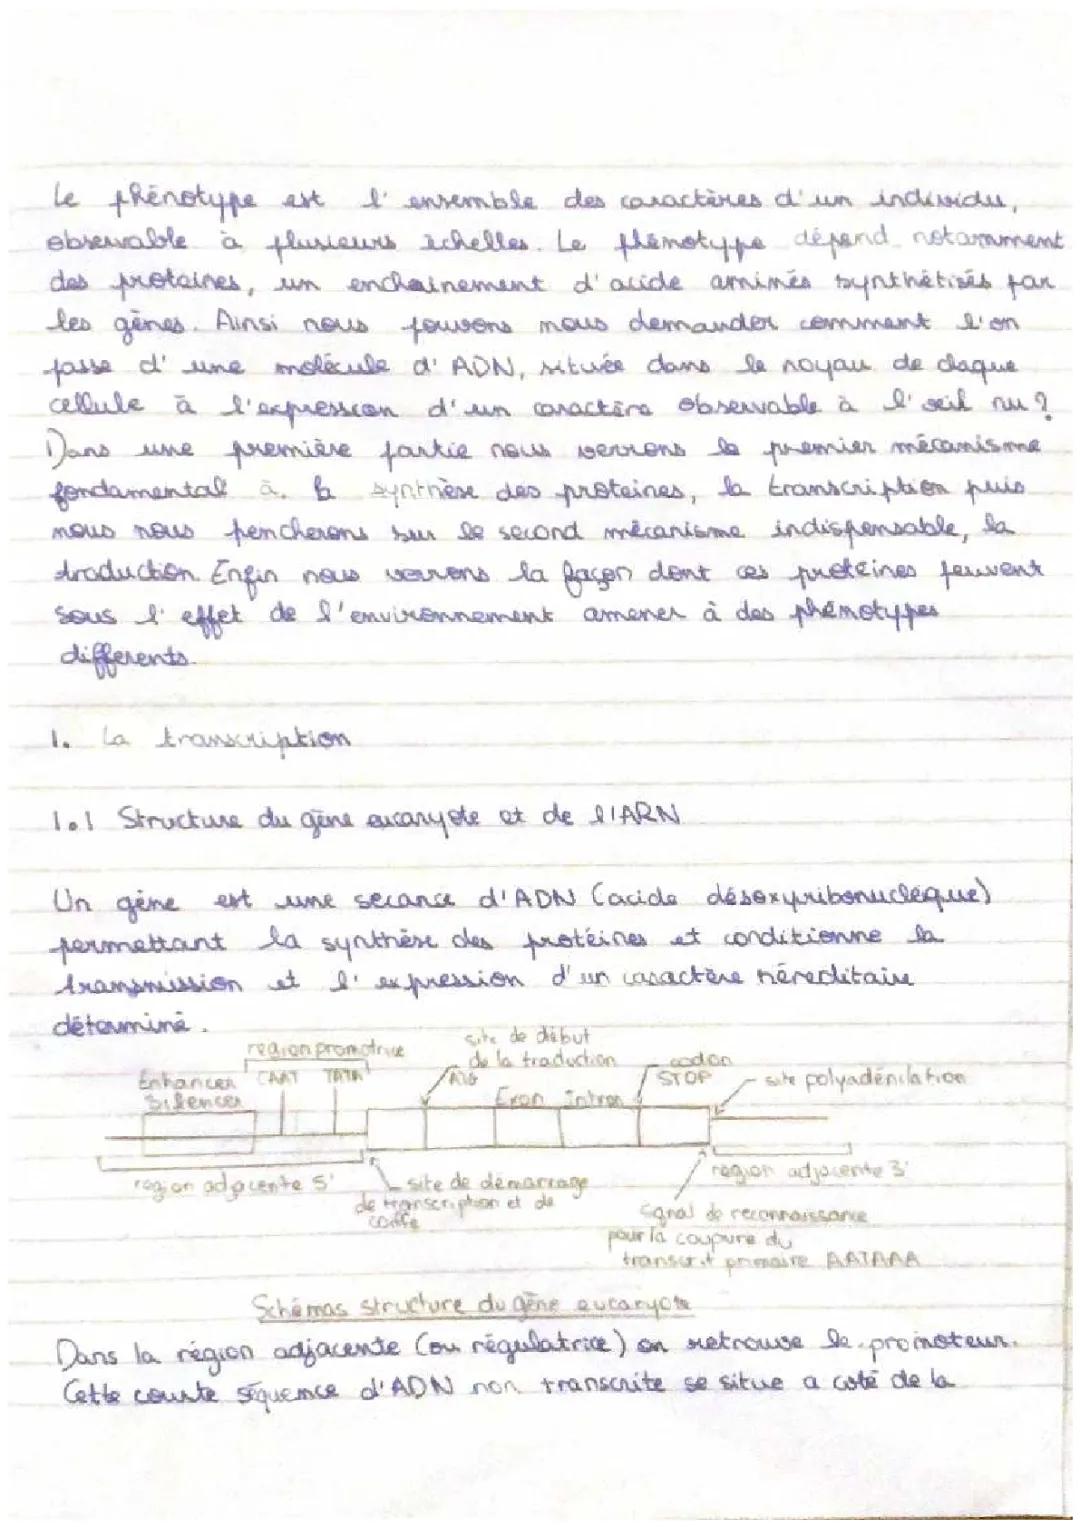 Le phénotype est l'ensemble des caractères d'un individu,
observable à plusieurs échelles. Le phénotype dépend notamment
des protéines, un enchainement d'acide aminés synthétisés par
les gènes. Ainsi nous pouvons nous demander comment l'on
passe d'une molécule d'ADN, située dans le noyau de chaque
cellule à l'expression d'un caractère observable à l'oeil nu ?
Dans une première partie nous verrons le premier mécanisme
fondamental à la synthèse des protéines, la transcription puis
nous nous pencherons sur le second mécanisme indispensable, la
traduction. Enfin nous verrons la façon dont ces protéines peuvent
sous l'effet de l'environnement amener à des phénotypes
differents.
1. La transcription
1.1 Structure du gène eucaryote et de l'ARN
Un gène est une secance d'ADN (acide désoxyribonucléique)
permettant la synthèse des protéines et conditionne la
transmission et l'expression d'un caractère héréditaire
déterminé.
region promotrice
site de début
de la traduction
codon
STOP
Enhancer
Silencer
CAAT TATA
AUG
Exon intron
site polyadénilation
region adjacente 5'
site de démarrage
de transcription et de
coiffe
région adjacente 3'
signal de reconnaissance
pour la coupure du
transcrit primaire AATAAA
Schémas structure du gène eucaryote
Dans la région adjacente (ou régulatrice) on retrouve le promoteur.
Cette courte séquence d'ADN non transcrite se situe a coté de la